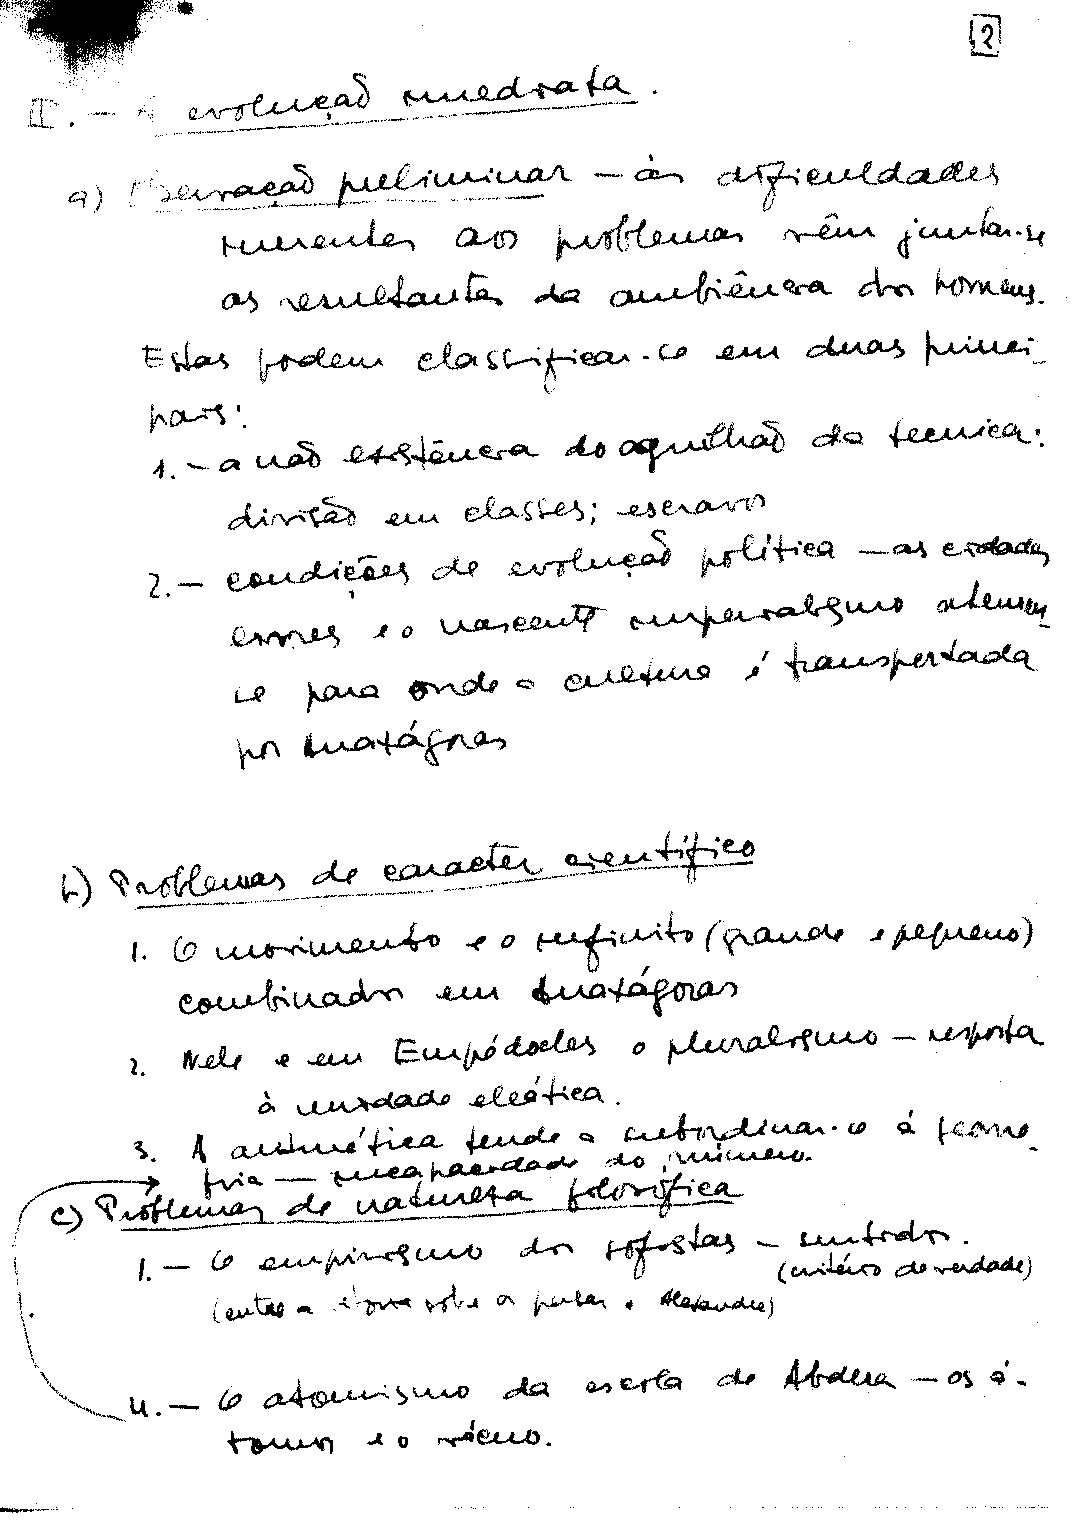 2
II. - A evolução imediata.
a) Observação preliminar - às dificuldades
inerentes aos problemas vêm juntar-se
as resultantes da ambiência dos homens.
Estas podem classificar-se em duas princi-
pais:
1. - a não existência do aguilhão da técnica:
divisão em classes; escravos
2. - condições de evolução política - as cidades
e o nascente imperialismo atenien-
se para onde a cultura é transportada
por Anaxágoras
b) Problemas de caracter científico
1. O movimento e o infinito (grande e pequeno)
combinados em Anaxágoras
2. Nele e em Empédocles o pluralismo - resposta
à unidade eleática.
3. A aritmética tende a subordinar-se à geome-
tria - incapacidade do número.
c) Problemas de natureza filosófica
1. - O empirismo dos sofistas - sentidos.
(critério de verdade)
(entre a vitória sobre os persas e Alexandre)
4. - O atomismo da escola de Abdera - os á-
tomos e o vácuo.